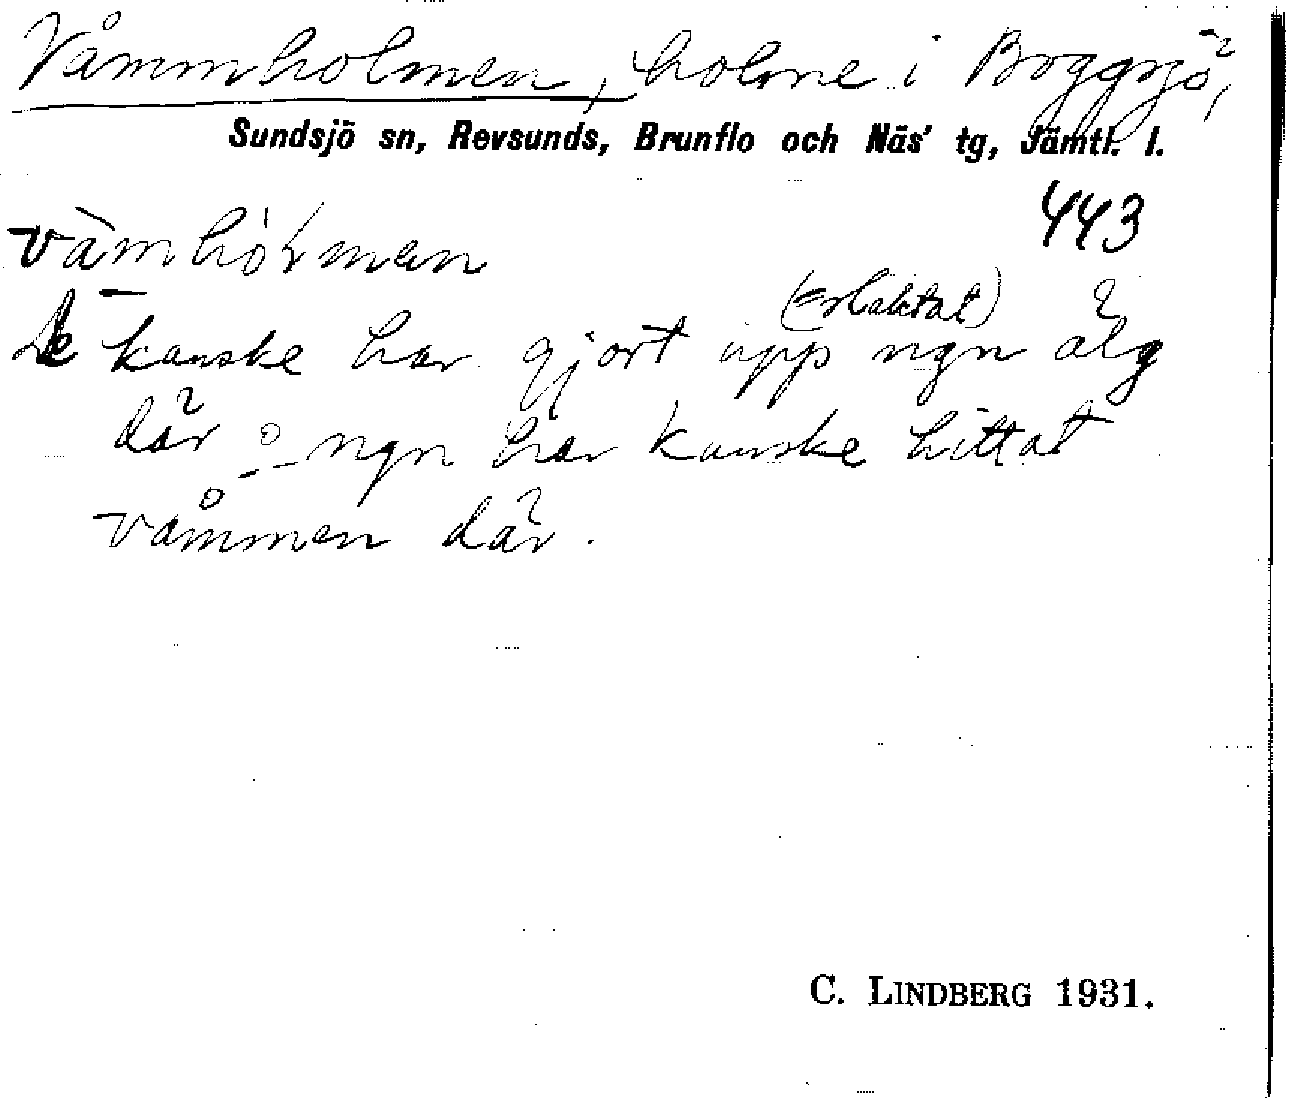 Våmmholmen, holme i Boggsjö,
Sundsjö sn, Revsunds, Brunflo och Näs' tg, Jämtl. l.
443
våmhòłman
(=slaktat)
De kanske har gjort upp ngn älg
där o ngn har kanske hittat
våmmen där.
C. LINDBERG 1931.